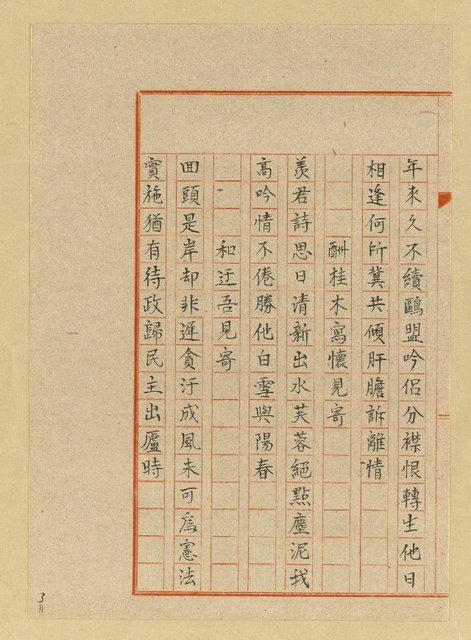 年來久不續鷗盟吟侶分襟恨轉生他日
相逢何所冀共傾肝膽訴離情
酬桂木寫懷見寄
羨君詩思日清新出水芙蓉絕點塵泥我
高吟情不倦勝他白雪與陽春
和迂吾見寄
回頭是岸却非遲貪汙成風未可為憲法
實施猶有待政歸民主出廬時
3